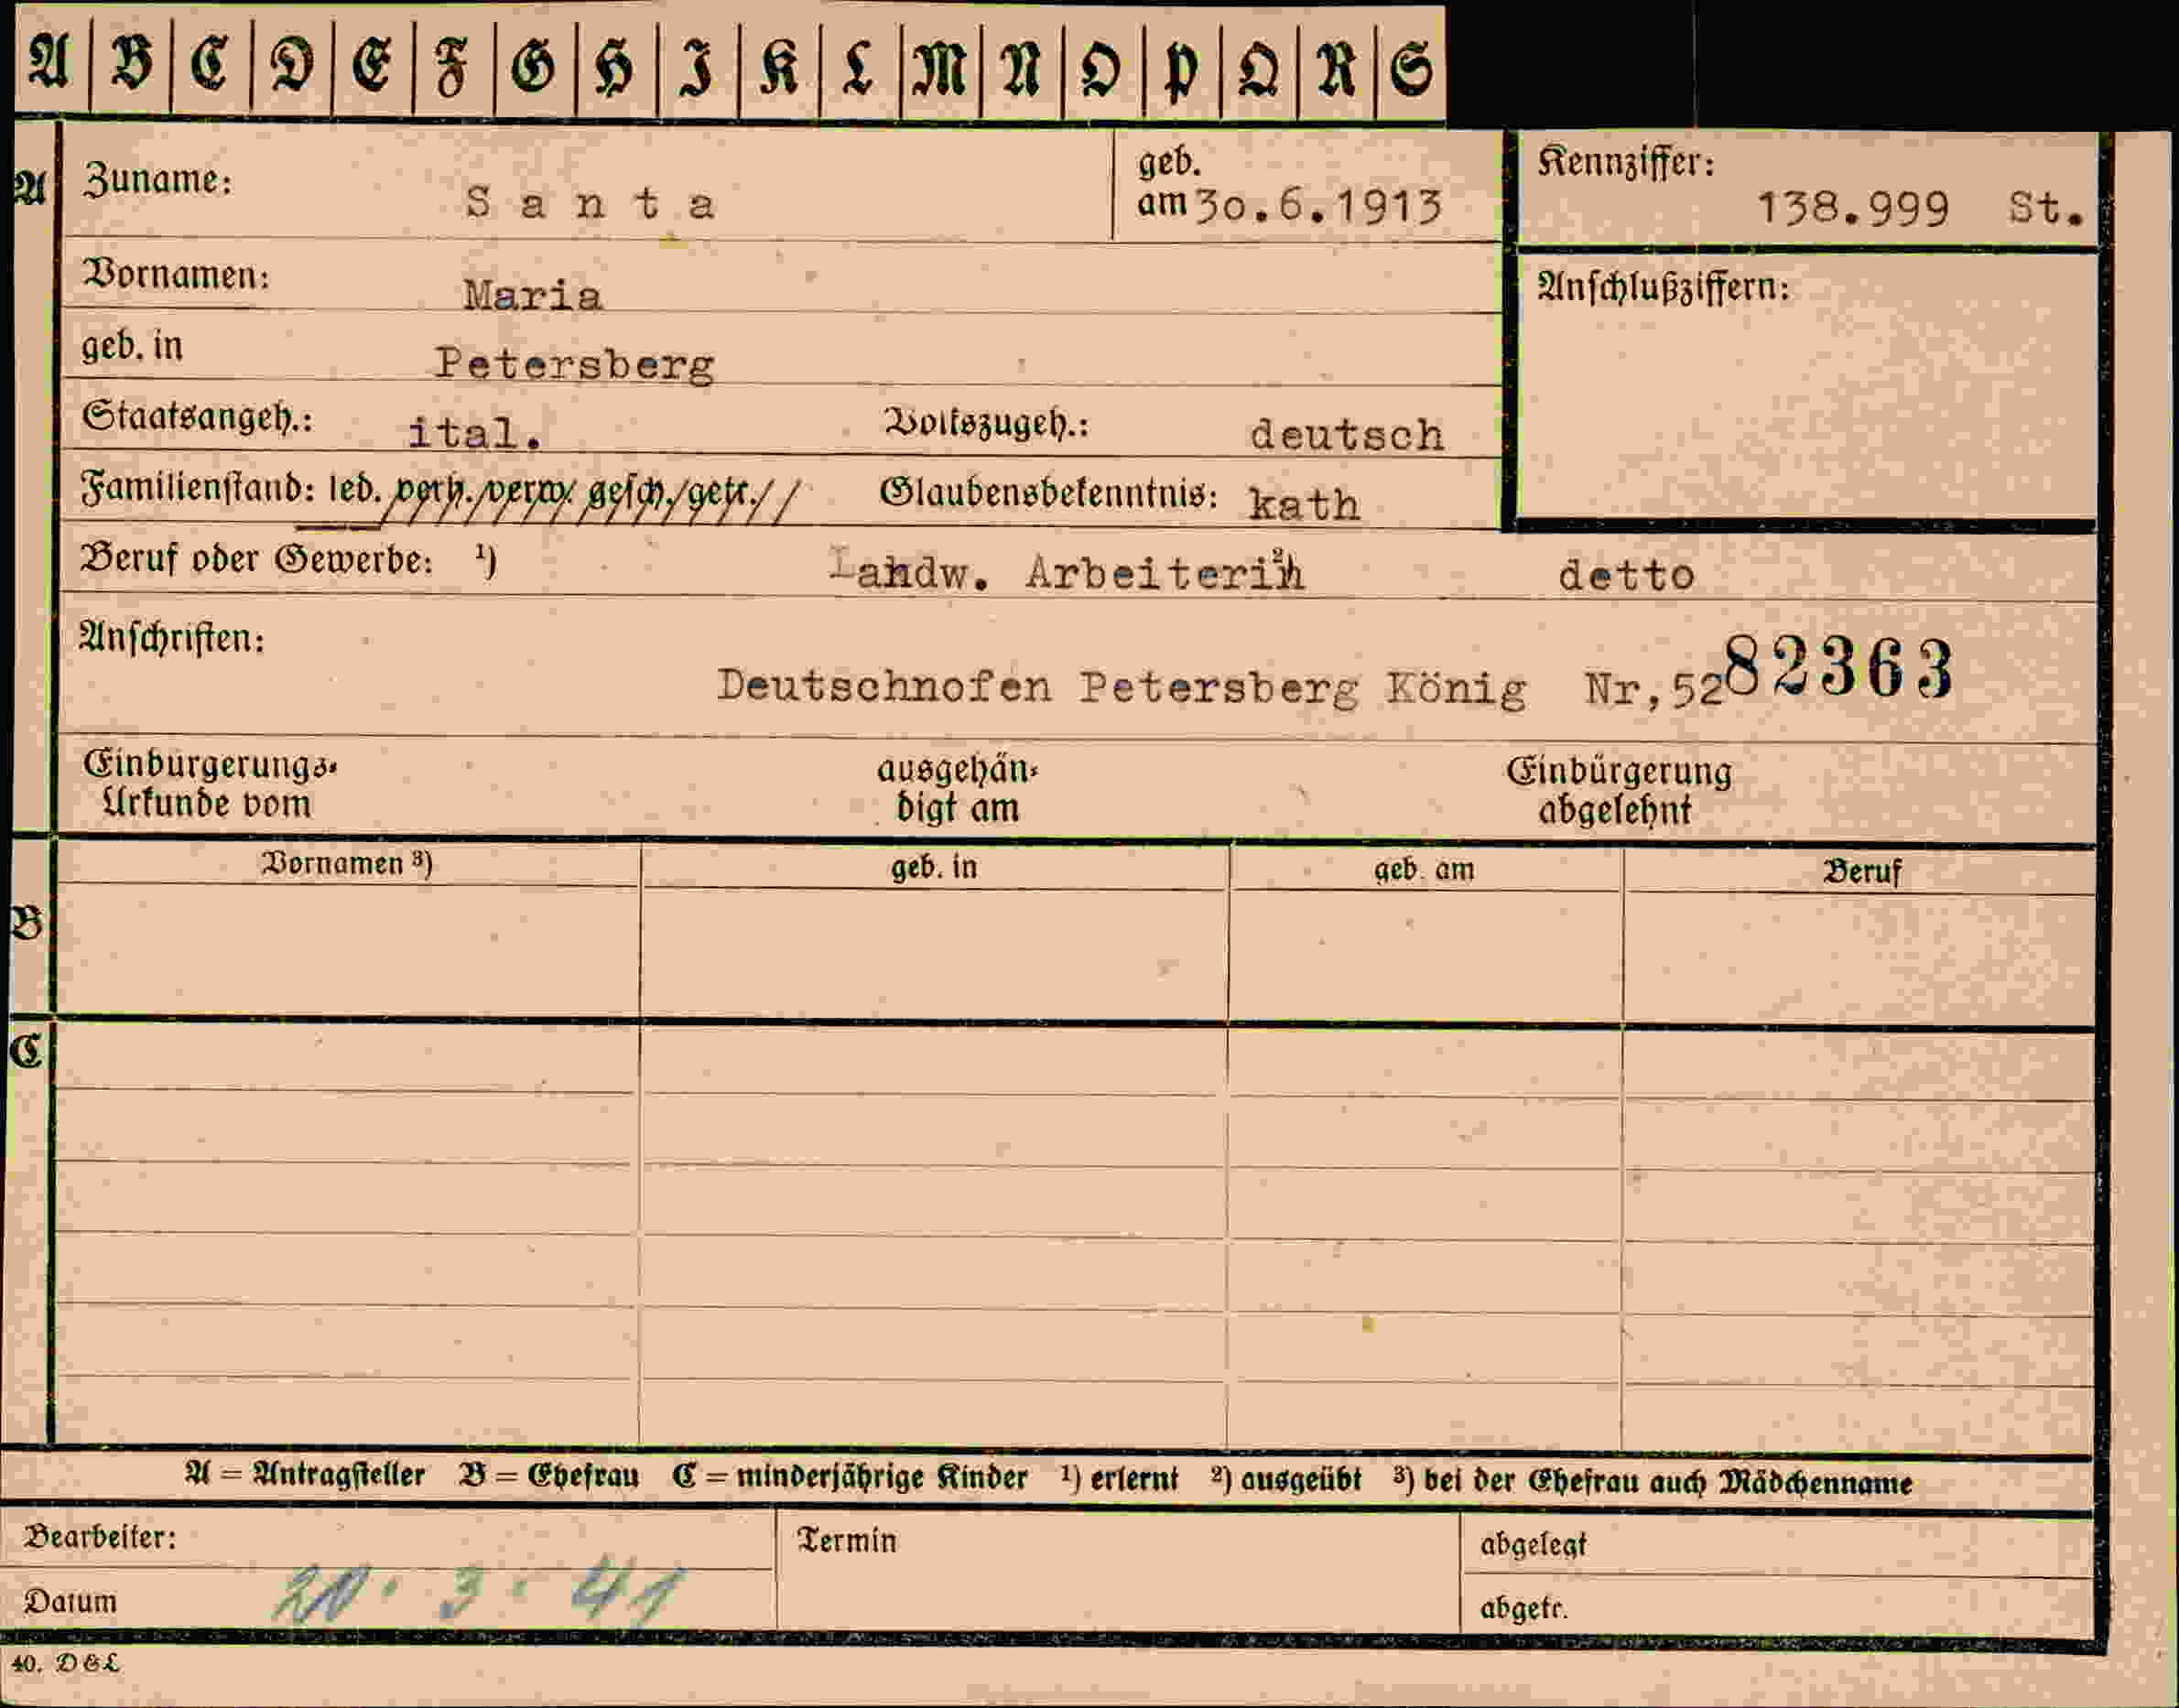 A B C D E F G H I K L M N O P Q R S
A Zuname: Santa geb. am 30.6.1913 Kennziffer: 138.999 St.
Vornamen: Maria Anschlußziffern:
geb. in Petersberg
Staatsangeh.: ital. Volkszugeh.: deutsch
Familienstand: led. verh./verw./gesch./getr.// Glaubensbekenntnis: kath
Beruf oder Gewerbe: ¹) Landw. Arbeiterin ²) detto
Anschriften:
Deutschnofen Petersberg König Nr,52 82363
Einbürgerungs- ausgehän- Einbürgerung
Urkunde vom digt am abgelehnt
Vornamen ³) geb. in geb. am Beruf
B
C
A = Antragsteller B = Ehefrau C = minderjährige Kinder ¹) erlernt ²) ausgeübt ³) bei der Ehefrau auch Mädchenname
Bearbeiter: Termin abgelegt
Datum 20. 3. 41 abgetr.
40. D&L